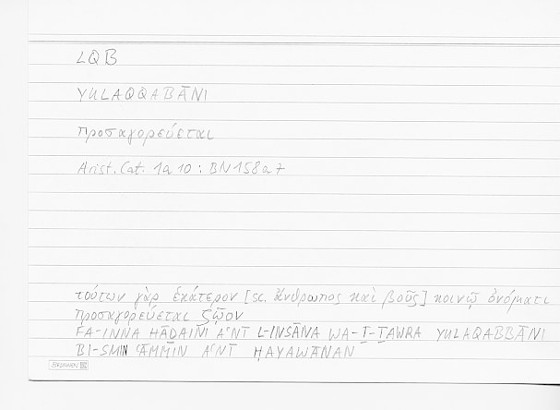 LQB
YULAQQABĀNI
προσαγορεύεται
Arist. Cat. 1a 10 : BN 158a7
τούτων γὰρ ἑκάτερον [sc. ἄνθρωπος καὶ βοῦς] κοινῷ ὀνόματι
προσαγορεύεται ζῷον
FA-INNA HĀḎAINI AʿNĪ L-INSĀNA WA-Ṯ-ṮAWRA YULAQABBĀNI
BI-SMIN ʿĀMMIN AʿNĪ ḤAYAWĀNAN